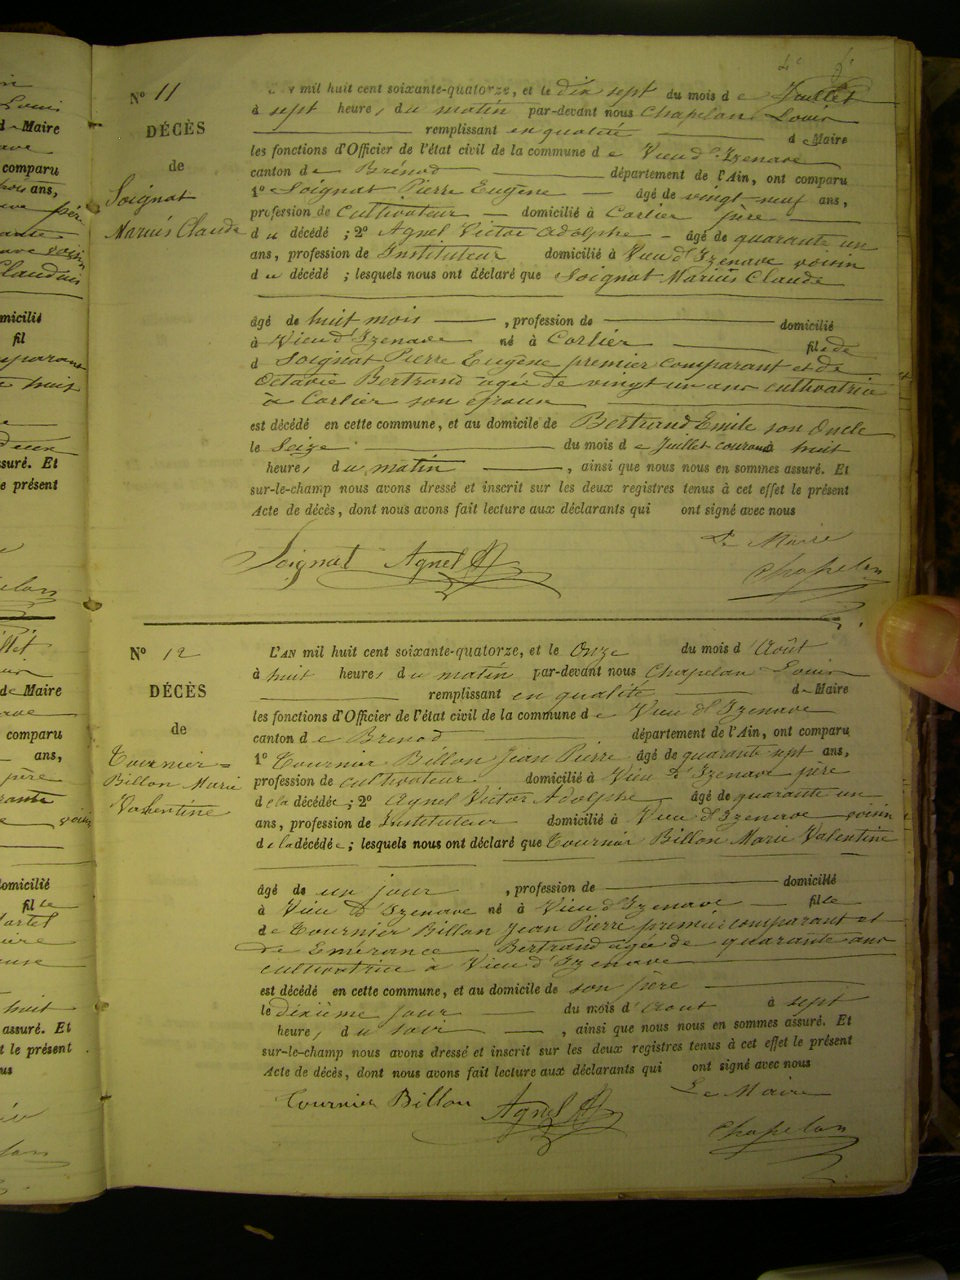 Nº 11
DÉCÈS
de
Soignat
Marius Claude
mil huit cent soixante-quatorze, et le dix sept du mois de Juillet
à sept heures du matin par-devant nous Chapelan Louis
remplissant en qualité de Maire
les fonctions d'Officier de l'état civil de la commune de Vieu d'Izenave
canton de Brénod département de l'Ain, ont comparu
1º Soignat Pierre Eugène âgé de vingt-neuf ans,
profession de Cultivateur domicilié à Corlier père
du décédé ; 2º Agnel Victor Adolphe âgé de quarante un
ans, profession de Instituteur domicilié à Vieu d'Izenave voisin
du décédé ; lesquels nous ont déclaré que Soignat Marius Claude
âgé de huit mois , profession de domicilié
à Vieu d'Izenave né à Corlier fils de
d Soignat Pierre Eugène premier comparant et de
Octavie Bertrand agée de vingt un ans cultivatrice
à Corlier son époux
est décédé en cette commune, et au domicile de Bertrand Emile son Oncle
le Seize du mois de Juillet courant à huit
heures du matin , ainsi que nous nous en sommes assuré. Et
sur-le-champ nous avons dressé et inscrit sur les deux registres tenus à cet effet le présent
Acte de décès, dont nous avons fait lecture aux déclarants qui ont signé avec nous
Le Maire
Soignat Agnel Chapelan
Nº 12
DÉCÈS
de
Tournier=
Billon Marie
Valentine
L'AN mil huit cent soixante-quatorze, et le Onze du mois d'Août
à huit heures du matin par-devant nous Chapelan Louis
remplissant en qualité de Maire
les fonctions d'Officier de l'état civil de la commune de Vieu d'Izenave
canton de Brenod département de l'Ain, ont comparu
1º Tournier Billon Jean Pierre âgé de quarante sept ans,
profession de cultivateur domicilié à Vieu d'Izenave père
de la décédée ; 2º Agnel Victor Adolphe âgé de quarante un
ans, profession de Instituteur domicilié à Vieu d'Izenave voisin
de la décédée ; lesquels nous ont déclaré que Tournier Billon Marie Valentine
âgé de un jour , profession de domicilié
à Vieu d'Izenave né à Vieu d'Izenave fille
de Tournier Billon Jean Pierre premier comparant et
de Emérance Bertrand agée de quarante ans
cultivatrice à Vieu d'Izenave
est décédé en cette commune, et au domicile de son père
le dixième jour du mois d'Août à sept
heures du soir , ainsi que nous nous en sommes assuré. Et
sur-le-champ nous avons dressé et inscrit sur les deux registres tenus à cet effet le présent
Acte de décès, dont nous avons fait lecture aux déclarants qui ont signé avec nous
Le Maire
Tournier Billon Agnel Chapelan